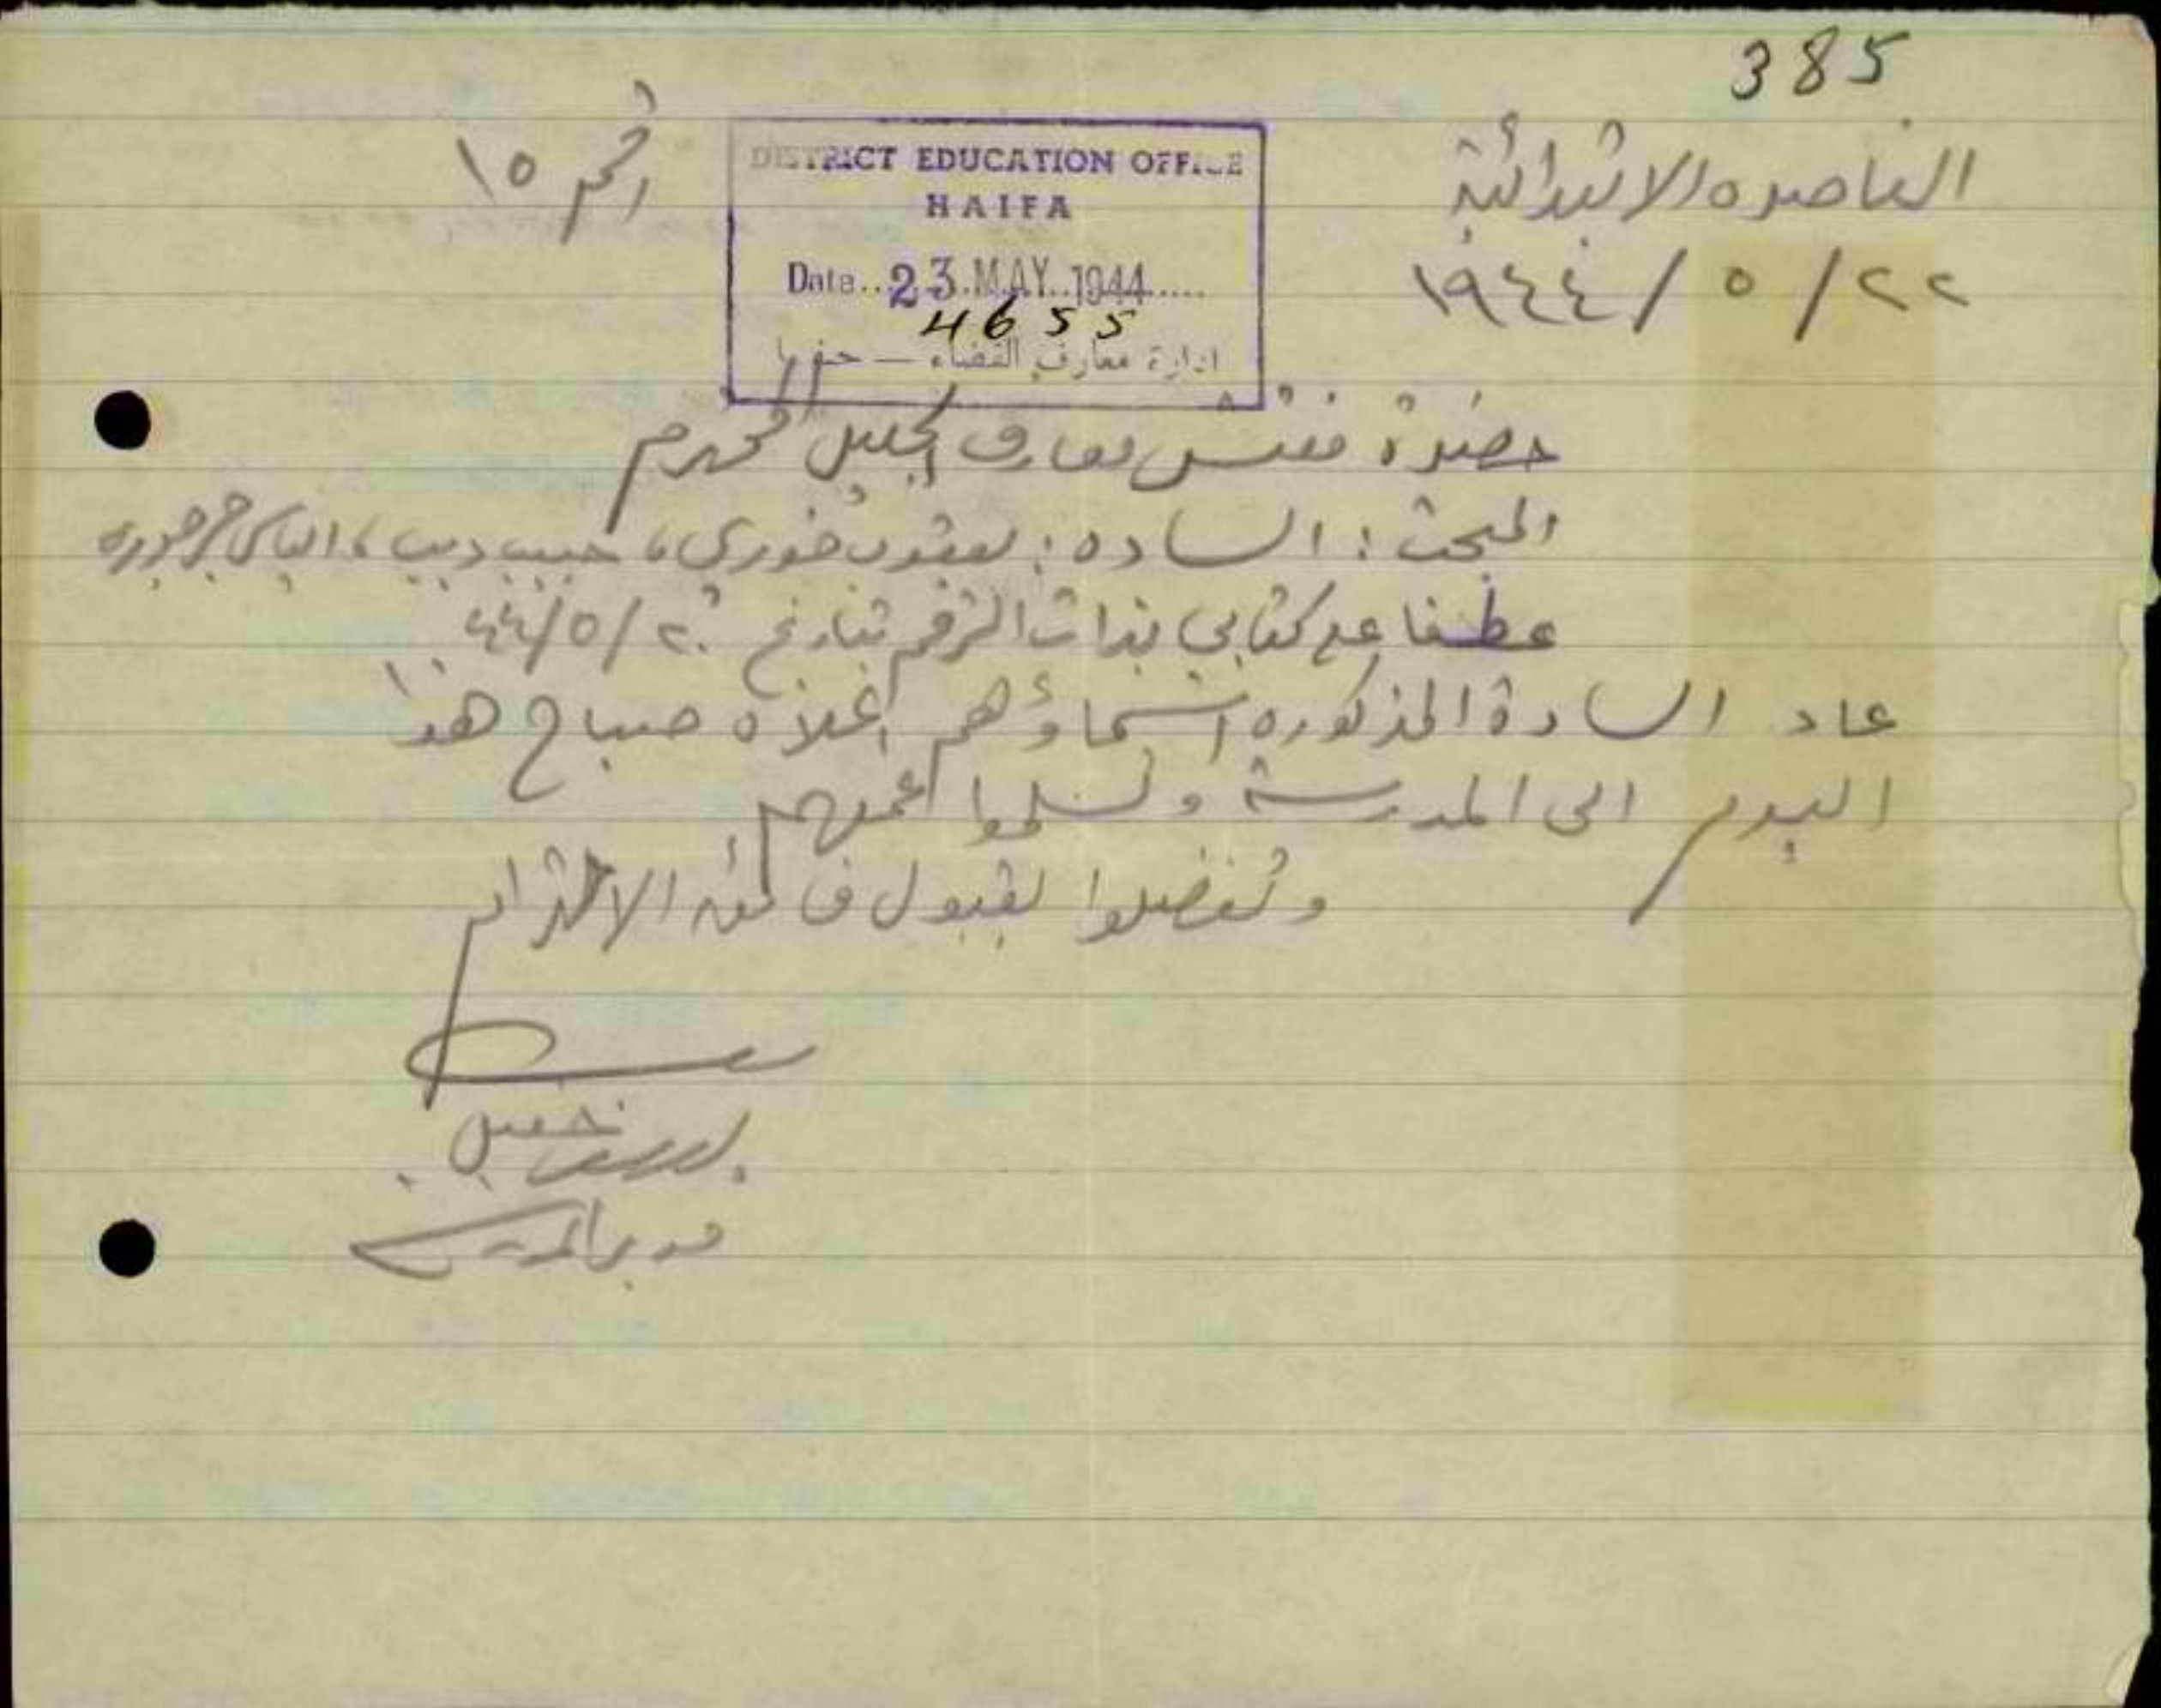 385
الناصره الابتدائية
رقم ١٥
٢٢ / ٥ / ١٩٤٤
DISTRICT EDUCATION OFFICE
HAIFA
Date.. 23 MAY 1944 .....
4655
ادارة معارف القضاء — حيفا
حضرة مفتش معارف الجليل المحترم
المبحث : الساده : يعقوب خوري ، حبيب ديب ، الياس جرجوره
عطفا على كتابي بذات الرقم تاريخ ٢٠/٥/٤٤
عاد السادة المذكوره اسماؤهم اعلاه صباح هذا
اليوم الى المدرسة وتسلموا عملهم
وتفضلوا بقبول فائق الاحترام
خليل
مدير المدرسة